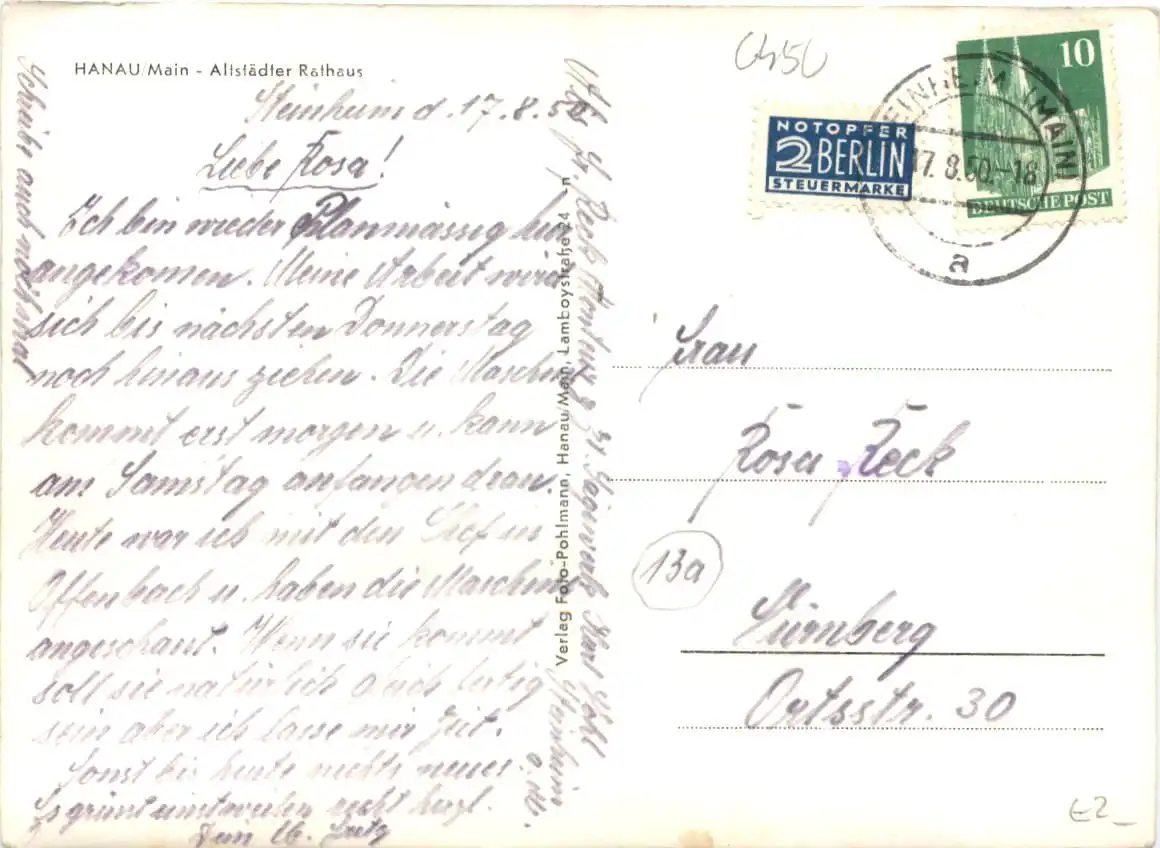 HANAU/Main - Altstädter Rathaus
Steinheim d. 17.8.50
Liebe Rosa!
Ich bin wieder Planmässig hier
angekomen. Meine Arbeit wird
sich bis nächsten Donnerstag
noch hinaus ziehen. Die Maschine
kommt erst morgen u. kann
am Samstag anfangen dran.
Heute war ich mit den Chef in
Offenbach u. haben die Maschine
angeschaut. Wenn sie kommt
soll sie natürlich gleich fertig
sein aber ich lasse mir Zeit.
Sonst bis heute nichts neues.
Es grüsst einstweilen recht herzl.
Dein lb. Fritz
Schreibe auch nochmal
Steinheim
a. M.
Verlag Foto-Pohlmann, Hanau/Main, Lamboystraße 24
n
0450
NOTOPFER
2 BERLIN
STEUERMARKE
10
DEUTSCHE POST
STEINHEIM (MAIN)
17.8.50.-18
a
Frau
Rosa Reck
13a
Nürnberg
Ortsstr. 30
€2_